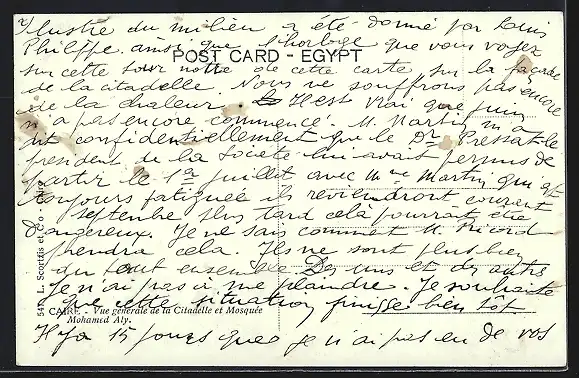 lustre du milieu a été donné par Louis
Philippe. ainsi que l'horloge que vous voyez
POST CARD - EGYPT
sur cette tour notte de cette carte, sur la façade
de la citadelle. Nous ne souffrons pas encore
de la chaleur. Il est vrai que juin
n'a pas encore commencé. M. Martin m'a
dit confidentiellement que le Dr Pressat le
président de la Société lui avait permis de
partir le 1er juillet avec Mme Martin qui est
toujours fatiguée ils reviendront courant
septembre plus tard cela pourrait être
dangereux. Je ne sais comment M. Ricord
prendra cela. Ils ne sont plus bien
du tout ensemble Des uns et des autres
je n'ai pas à me plaindre. Je souhaite
que cette situation finisse bien tôt
541. L. Scortzis et Co. Cairo
CAIRE - Vue générale de la Citadelle et Mosquée
Mohamed Aly.
Il y a 15 jours que je n'ai pas eu de vos